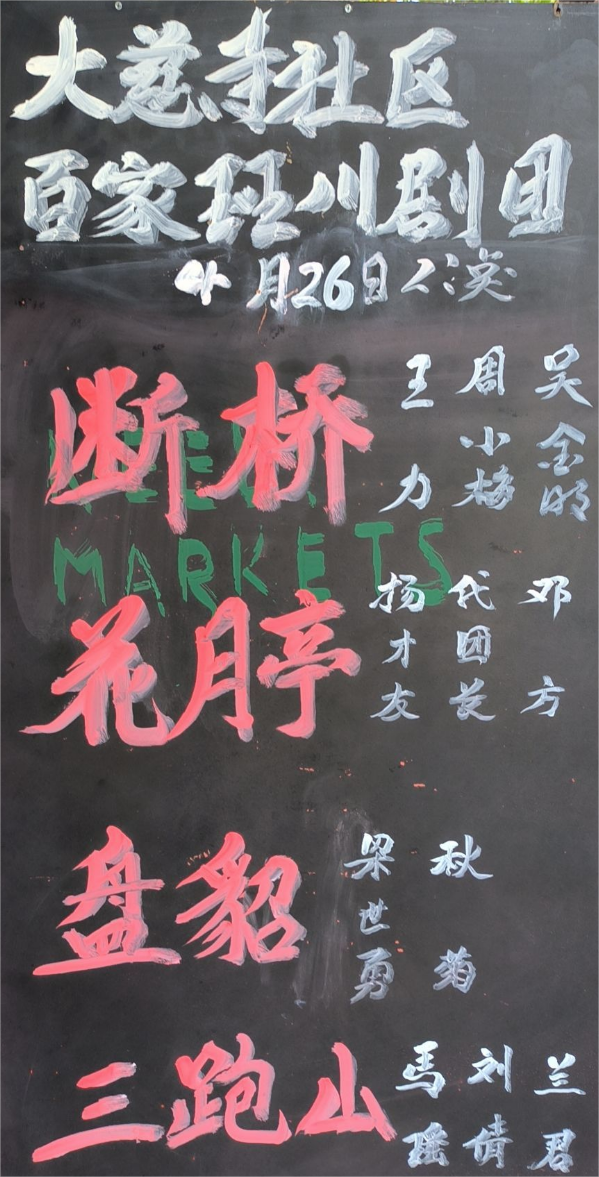 大慈寺社区
百家班川剧团
4月26日公演
断桥
王力
周小梅
吴金明
MARKETS
花月亭
扬才友
代团长
邓方
盘貂
梁世勇
秋菊
三跑山
马瑶
刘倩
兰君